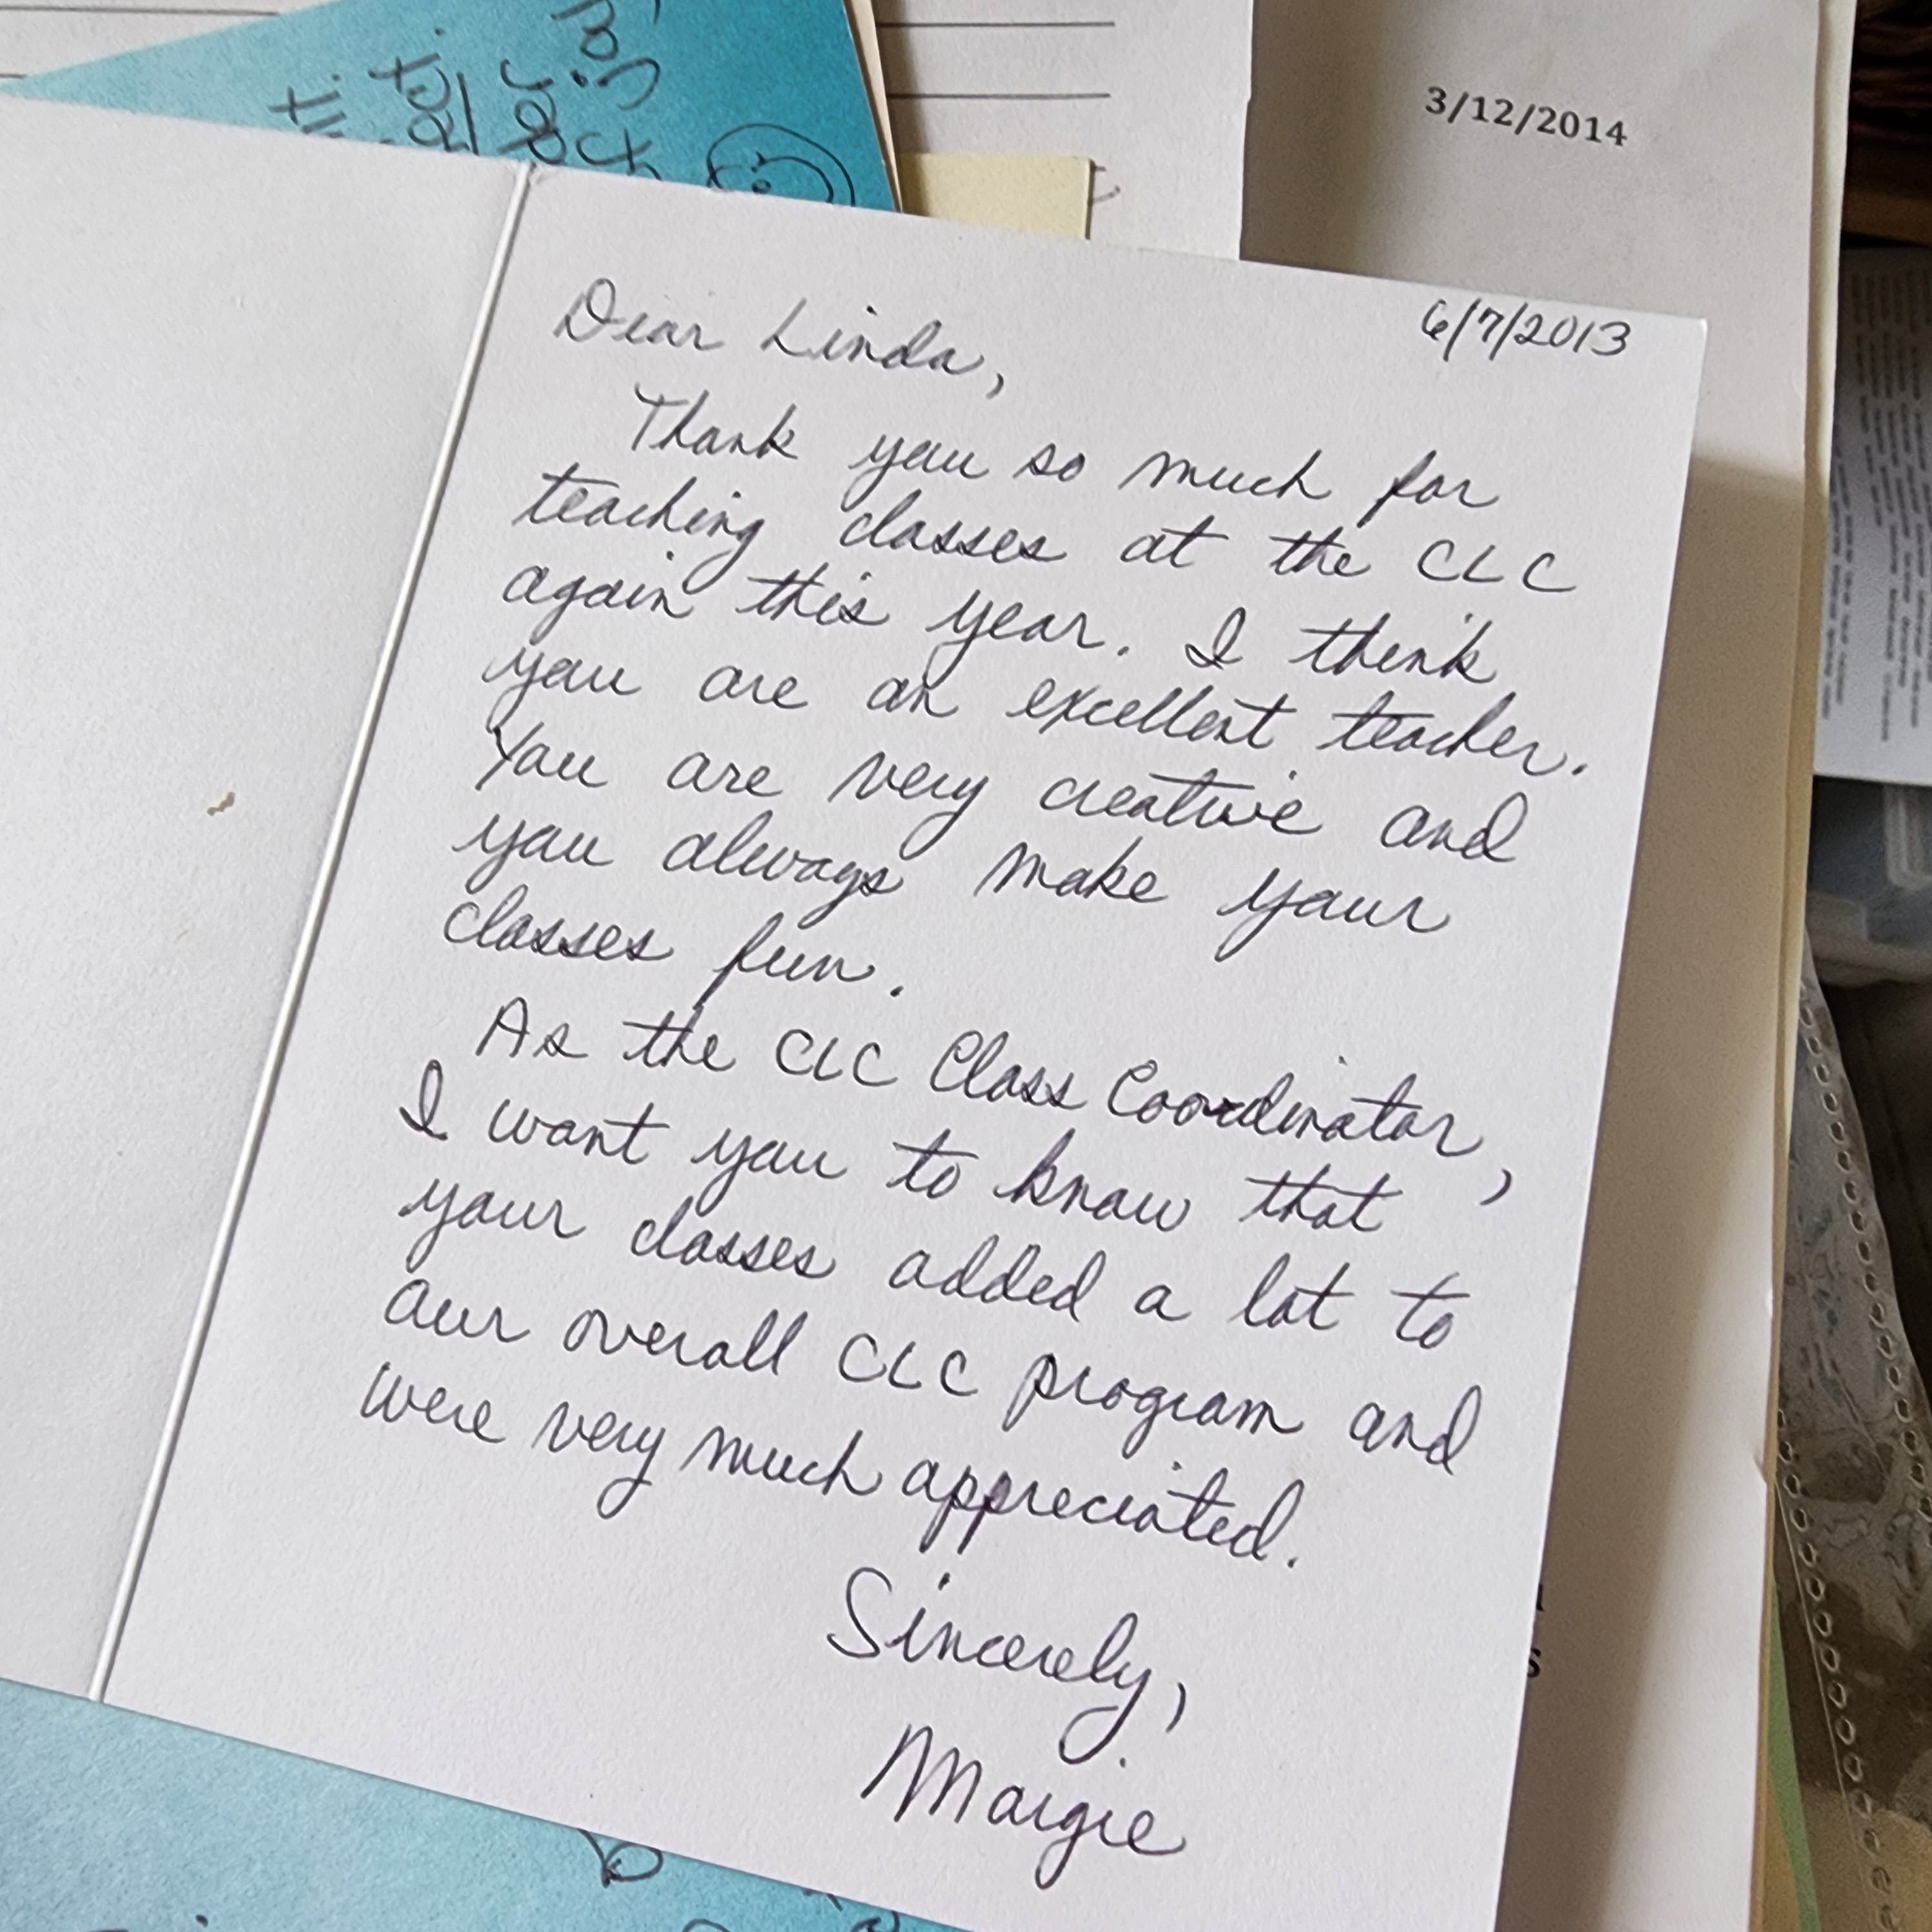 3/12/2014
6/7/2013
Dear Linda,
Thank you so much for
teaching classes at the CLC
again this year. I think
you are an excellent teacher.
You are very creative and
you always make your
classes fun.
As the CLC Class Coordinator,
I want you to know that
your classes added a lot to
our overall CLC program and
were very much appreciated.
Sincerely,
Margie